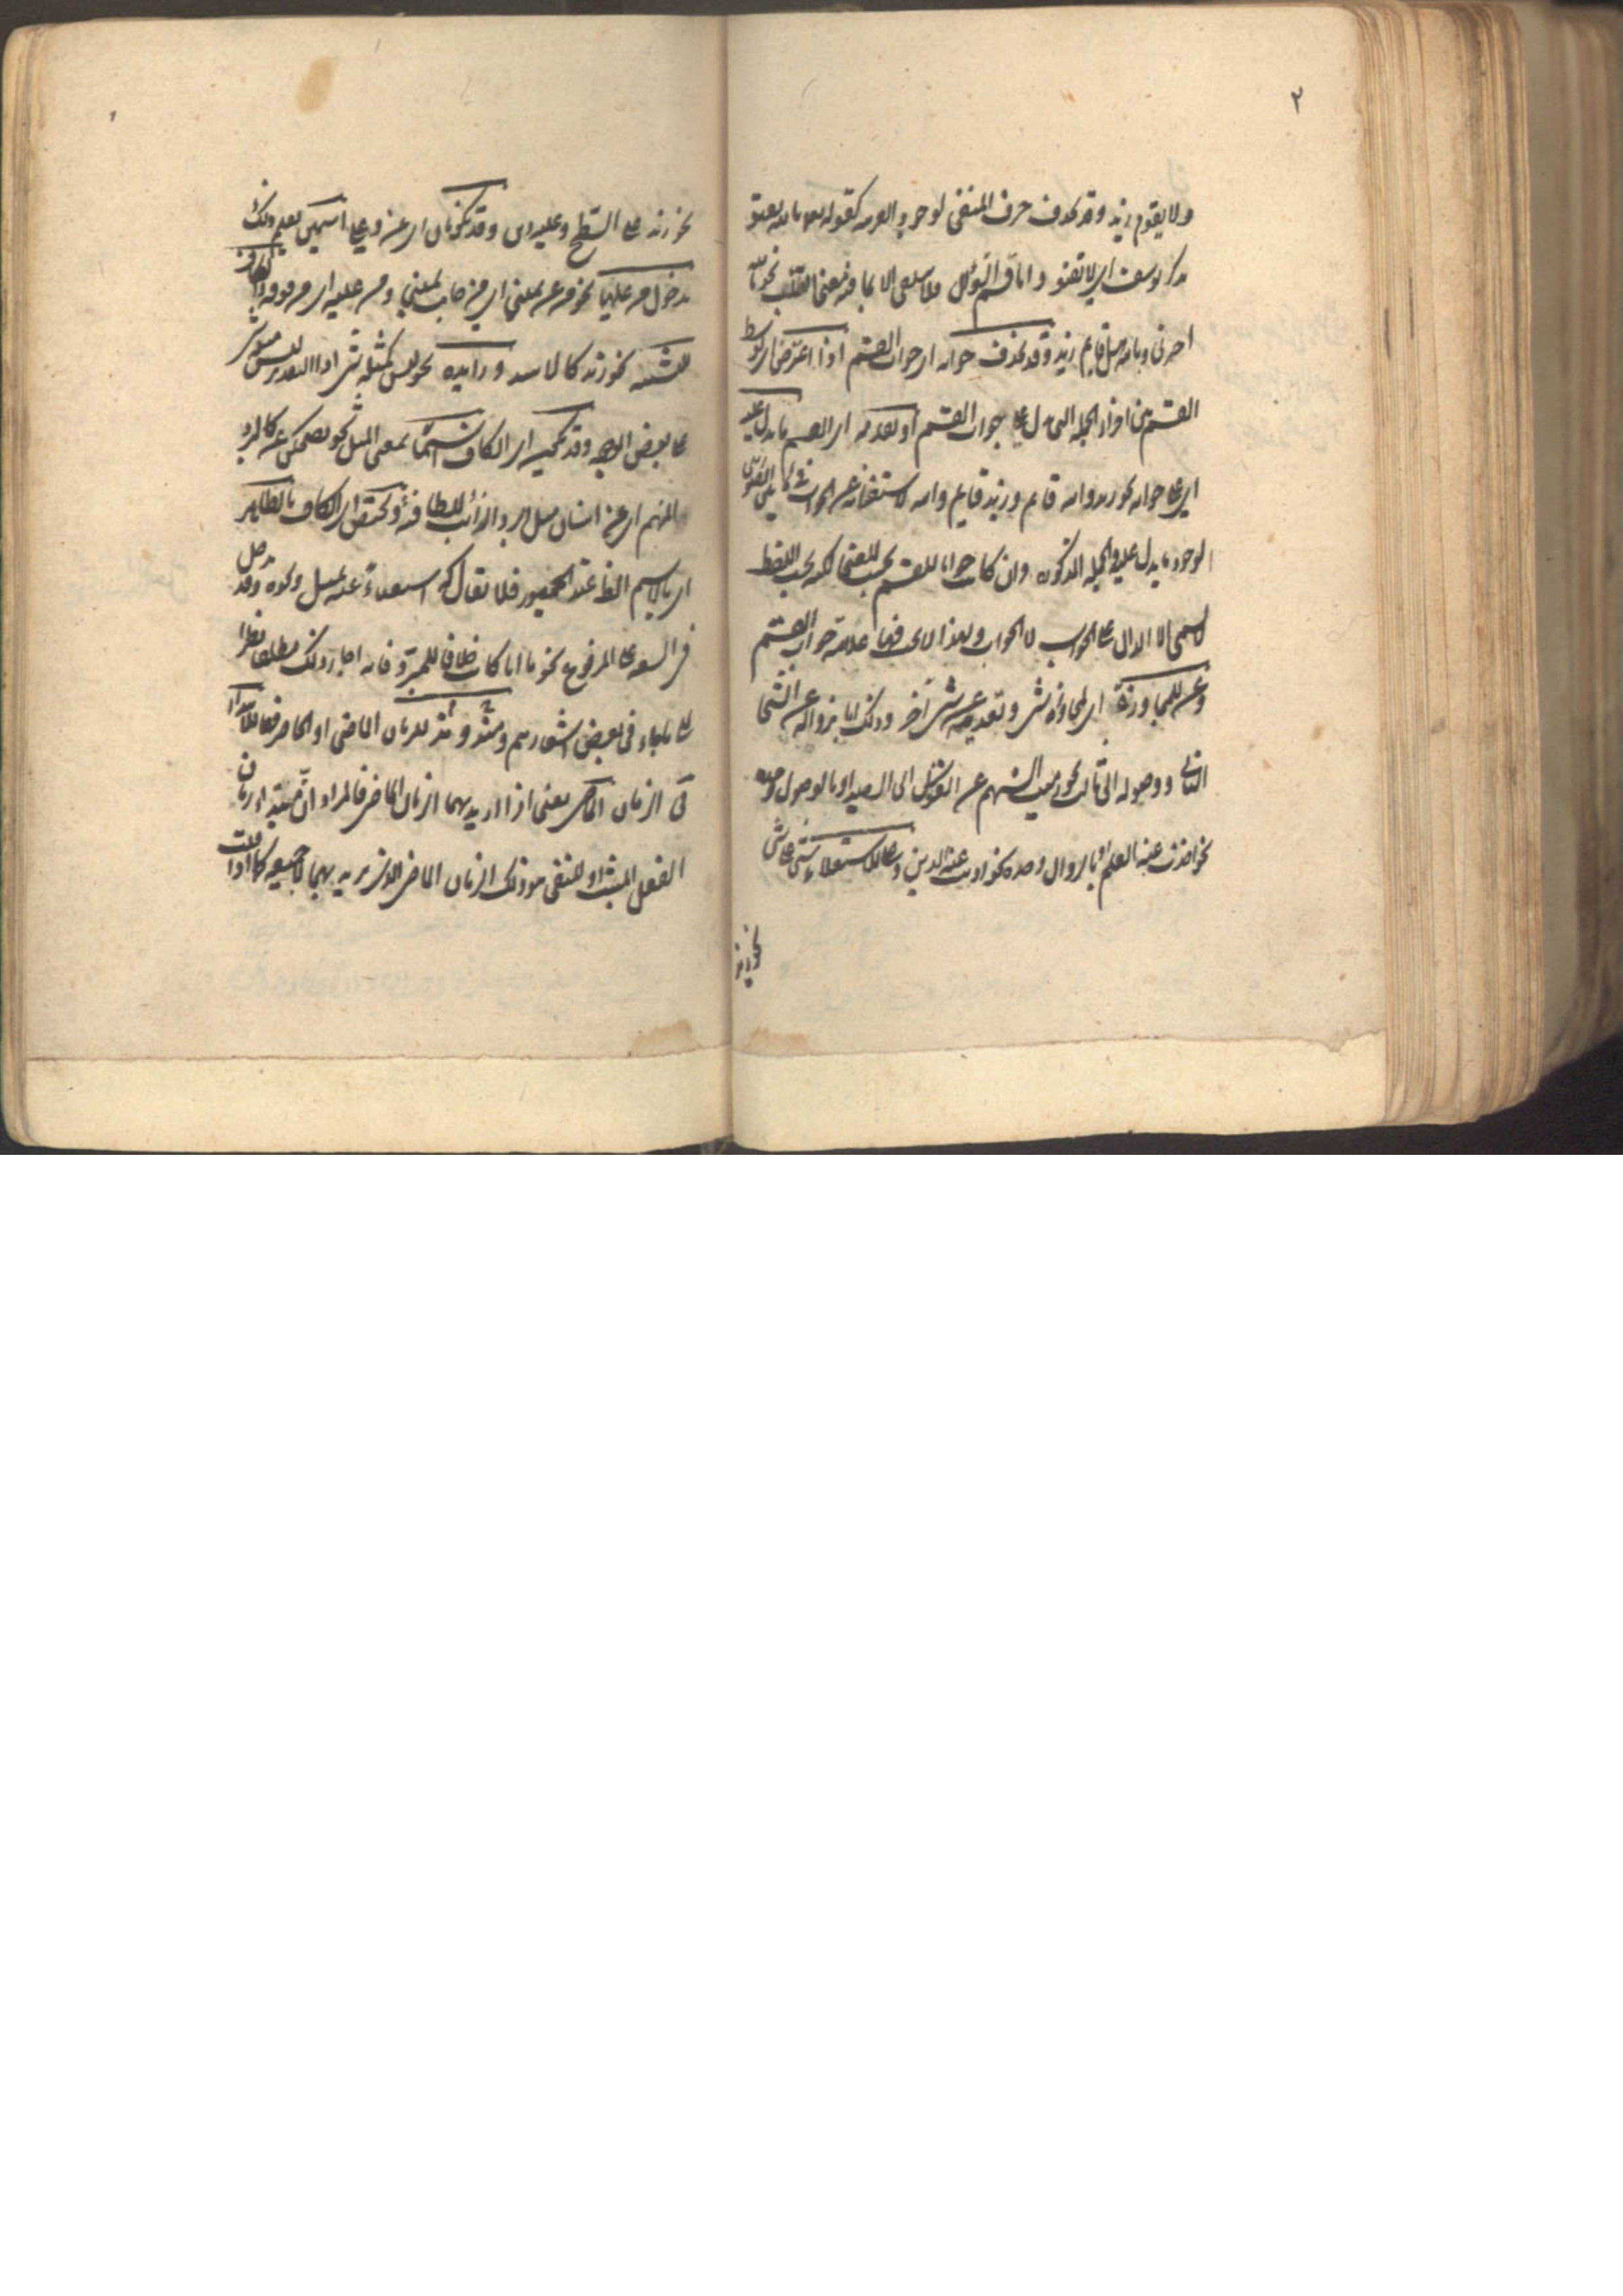 ٢
ولا يقوم زيد وقد يحذف حرف النفى لوجود القرينة كقوله تعالى تالله تفتؤ
تذكر يوسف اى لا تفتؤ واما قسم السؤال فلا يتلقى الا بما فيه معنى الطلب نحو بالله
اخبرنى وبالله هل قايم زيد وقد يحذف جوابه اى جواب القسم اذا اعترض اى توسط
القسم بين اجزاء الجملة التى تدل على جواب القسم او تقدمه اى القسم ما يدل عليه
اى على جوابه نحو زيد والله قائم وزيد قايم والله لاستغنائه عن الجواب فى
لوجود ما يدل عليه والجملة المذكورة وان كانت جوابا للقسم بحسب المعنى لكنه بحسب اللفظ
لا يسمى الا الدال على الجواب لا الجواب ولهذا لا يجب فيها علامة جواب القسم
وعن للمجاوزة اى لمجاوزة شئ وتعديته عن شئ آخر وذلك اما بزواله عن الشئ
الثانى ووصوله الى الثالث نحو رميت السهم عن القوس الى الصيد او بالوصول وحده
نحو اخذت عنه العلم او بالزوال وحده نحو اديت عنه الدين وعلى للاستعلاء شئ على شئ
نحو زيد
نحو زيد على السطح وعليه دين وقد تكونان اى عن وعلى اسمين يعلم ذلك
بدخول من عليهما نحو من عن يمينى اى من جانب يمينى ومن عليه اى من فوقه والكاف
للتشبيه نحو زيد كالاسد وزايدة نحو ليس كمثله شئ اذ التقدير ليس مثله شئ
على بعض الوجوه وقد تجيئ اى الكاف اسما بمعنى المثل نحو يضحكن عن كالبرد
المنهم اى عن اسنان مثل البرد الذائب للطافته وتختص اى الكاف بالظاهر
اى بالاسم الظاهر عند الجمهور فلا يقال كه استغناء عنه بمثل ونحوه وقد تدخل
فى السعة على المرفوع نحو ما انا كانت خلافا للمبرد فانه اجاز ذلك مطلقا نظرا
على ما جاء فى بعض اشعارهم ومذ ومنذ للزمان الماضى او الحاضر فهما للابتداء
فى الزمان الماضى يعنى اذا اريد بهما الزمان الماضى فالمراد ان مبتدا زمان
الفعل المثبت او المنفى هو ذلك الزمان الماضى الذى اريد بهما لا جميعه كما اذا قلت